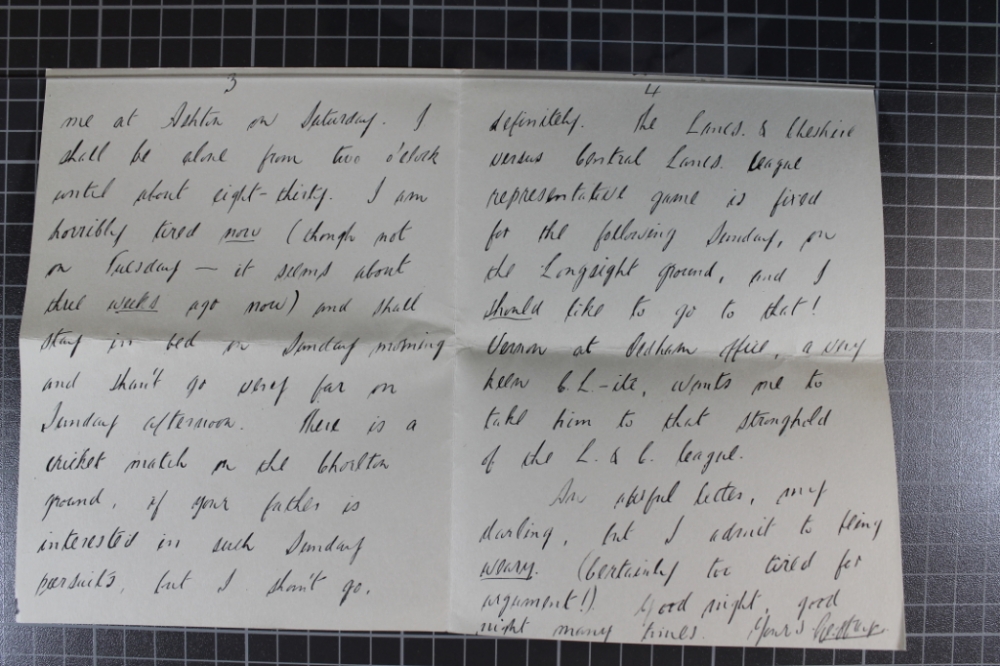 3
me at Ashton on Saturday. I
shall be alone from two o'clock
until about eight-thirty. I am
horribly tired now (though not
on Tuesday — it seems about
three weeks ago now) and shall
stay in bed on Sunday morning
and shan't go very far on
Sunday afternoon. There is a
cricket match on the Chorlton
ground, if your father is
interested in such Sunday
pursuits, but I shan't go,
4
definitely. The Lancs. & Cheshire
versus Central Lancs. league
representative game is fixed
for the following Sunday, on
the Longsight ground, and I
should like to go to that!
Vernon at Oldham office, a very
keen C.L.-ite, wants me to
take him to that stronghold
of the L. & C. league.
An awful letter, my
darling, but I admit to being
weary. (Certainly too tired for
argument!) Good night, good
night many times. Yours